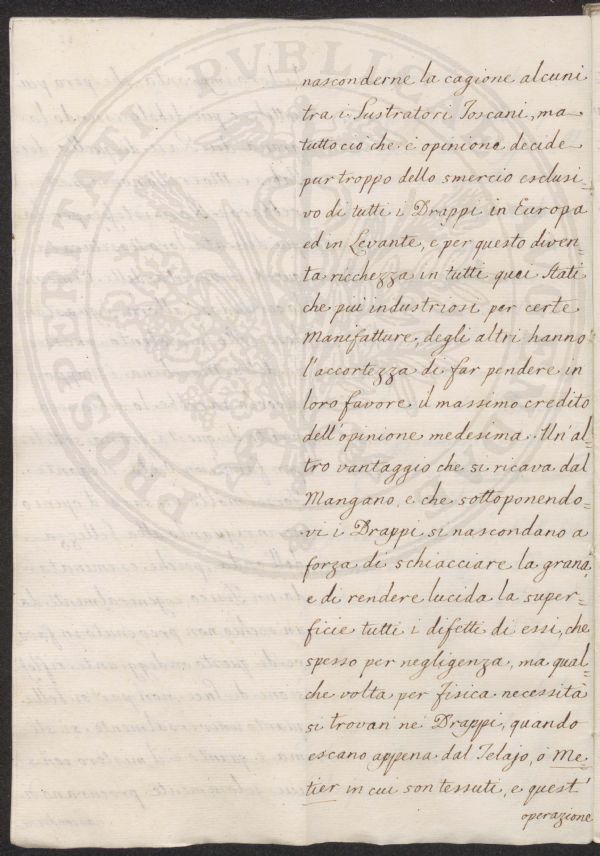 nasconderne la cagione alcuni
tra i Lustratori Toscani, ma
tutto ciò che è opinione decide
pur troppo dello smercio esclusi-
vo di tutti i Drappi in Europa
ed in Levante, e per questo diven-
ta ricchezza in tutti quei Stati
che più industriosi per certe
Manifatture degli altri hanno
l'accortezza di far pendere in
loro favore il massimo credito
dell'opinione medesima. Un'al
tro vantaggio che si ricava dal
Mangano, e che sottoponendo-
vi i Drappi si nascondano a
forza di schiacciare la grana,
e di rendere lucida la super-
ficie tutti i difetti di essi, che
spesso per negligenza, ma qual
che volta per fisica necessità
si trovan ne' Drappi, quando
escano appena dal Telajo, o Me-
tier in cui son tessuti, e quest'
operazione
PROSPERITATI PVBLICAE